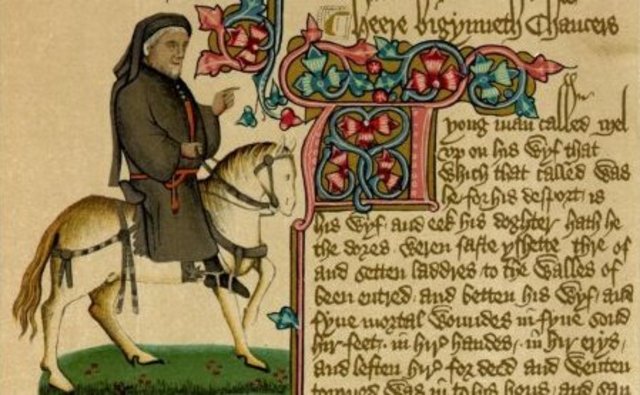 Heere bigynneth Chaucers
A yong man called Mel
vp on his wyf that
which that called was
he for his desport is
his wyf / and eek his doghter hath he
the dores weren faste yshette thre of
and setten laddres / to the walles of
been entred / and betten his wyf / and
fyue mortal woundes in fyue sond
hir feet / in hir handes / in hir erys
and leften hir for deed and wenten
torned was in to his hous / and sau